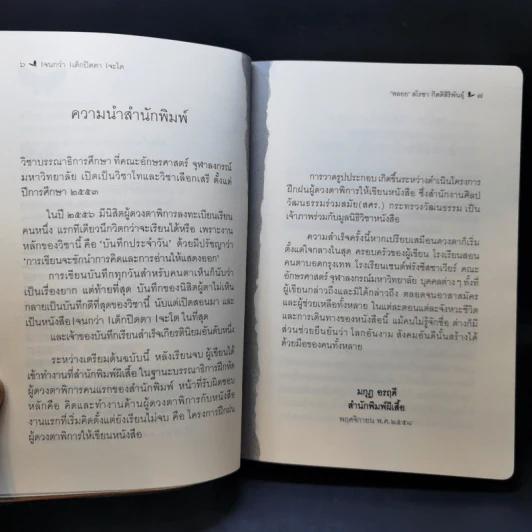 ๖ จนกว่า เด็กปิดตา จะโต
ความนำสำนักพิมพ์
วิชาบรรณาธิการศึกษา ที่คณะอักษรศาสตร์ จุฬาลงกรณ์
มหาวิทยาลัย เปิดเป็นวิชาโทและวิชาเลือกเสรี ตั้งแต่
ปีการศึกษา ๒๕๕๓
ในปี ๒๕๕๖ มีนิสิตผู้ดวงตาพิการลงทะเบียนเรียน
คนหนึ่ง แรกที่เดียวนึกวิตกว่าจะเรียนได้หรือ เพราะงาน
หลักของวิชานี้ คือ ‘บันทึกประจำวัน’ ด้วยมีปรัชญาว่า
‘การเขียนจะชักนำการคิดและการอ่านให้แสดงออก’
การเขียนบันทึกทุกวันสำหรับคนตาเห็นก็นับว่า
เป็นเรื่องยาก แต่ท้ายที่สุด บันทึกของนิสิตผู้ตาไม่เห็น
กลายเป็นบันทึกดีที่สุดของวิชานี้ นับแต่เปิดสอนมา และ
เป็นหนังสือ จนกว่า เด็กปิดตา จะโต ในที่สุด
และเจ้าของบันทึกเรียนสำเร็จเกียรตินิยมอันดับหนึ่ง
ระหว่างเตรียมต้นฉบับนี้ หลังเรียนจบ ผู้เขียนได้
เข้าทำงานที่สำนักพิมพ์ผีเสื้อ ในฐานะบรรณาธิการฝึกหัด
ผู้ดวงตาพิการคนแรกของสำนักพิมพ์ หน้าที่รับผิดชอบ
หลักคือ คิดและทำงานด้านผู้ดวงตาพิการกับหนังสือ
งานแรกที่เริ่มคิดตั้งแต่ยังเรียนไม่จบ คือ โครงการฝึกฝน
ผู้ดวงตาพิการให้เขียนหนังสือ
"พลอย" สโรชา กิตติสิริพันธุ์ ๗
การวาดรูปประกอบ เกิดขึ้นระหว่างดำเนินโครงการ
ฝึกฝนผู้ดวงตาพิการให้เขียนหนังสือ ซึ่งสำนักงานศิลป
วัฒนธรรมร่วมสมัย(สศร.) กระทรวงวัฒนธรรม เป็น
เจ้าภาพร่วมกับมูลนิธิวิชาหนังสือ
ความสำเร็จครั้งนี้หากเปรียบเสมือนดวงตาก็เริ่ม
ตั้งแต่ใจกลางในสุด ครอบครัวของผู้เขียน โรงเรียนสอน
คนตาบอดกรุงเทพ โรงเรียนเซนต์ฟรังซีสซาเวียร์ คณะ
อักษรศาสตร์ จุฬาลงกรณ์มหาวิทยาลัย บุคคลต่างๆ ทั้งที่
ผู้เขียนกล่าวถึงและมิได้กล่าวถึง ตลอดจนอาสาสมัคร
และผู้ช่วยเหลือทั้งหลาย ในแต่ละตอนแต่ละจังหวะชีวิต
และการเดินทางของหนังสือนี้ แม้คนไม่รู้จักชื่อ ต่างก็มี
ส่วนช่วยยืนยันว่า โลกอันงาม สังคมอันดีนั้นสร้างได้
ด้วยมือของคนทั้งหลาย
มกุฏ อรฤดี
สำนักพิมพ์ผีเสื้อ
พฤศจิกายน พ.ศ.๒๕๕๘